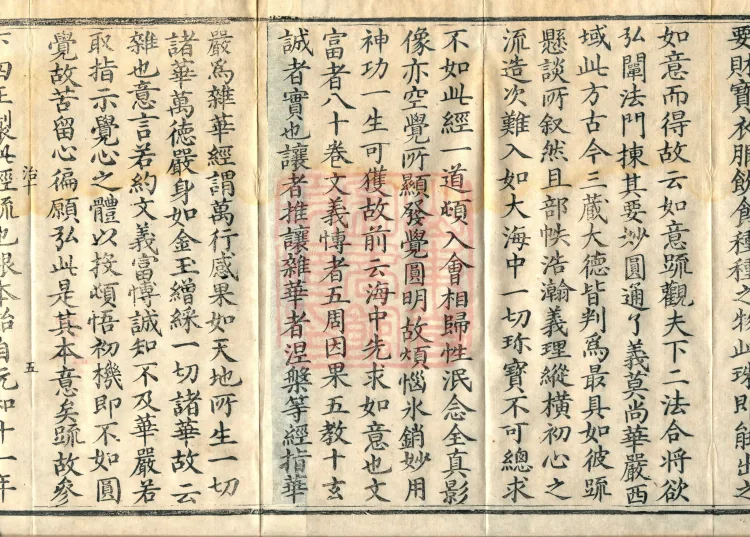 要財寶衣服飲食種種之物此珠則能出之
如意而得故云如意疏觀夫下二法合將欲
弘闡法門揀其要妙圓通了義莫尚華嚴西
域此方古今三藏大德皆判爲最具如彼疏
懸談所叙然且部帙浩瀚義理縱橫初心之
流造次難入如大海中一切珎寶不可總求
不如此經一道頓入會相歸性泯念全真影
像亦空覺所顯發覺圓明故煩惱氷銷妙用
神功一生可獲故前云海中先求如意也文
富者八十卷文義愽者五周因果五教十玄
誠者實也讓者推讓雜華者涅槃等經指華
嚴爲雜華經謂萬行感果如天地所生一切
諸華萬德嚴身如金玉繒綵一切諸華故云
雜也意言若約文義富愽誠知不及華嚴若
取指示覺心之體以接頓悟初機即不如圓
覺故苦留心徧願弘此是其本意矣疏故參
治十 五
下四正製此經疏也根本始自元和十一年